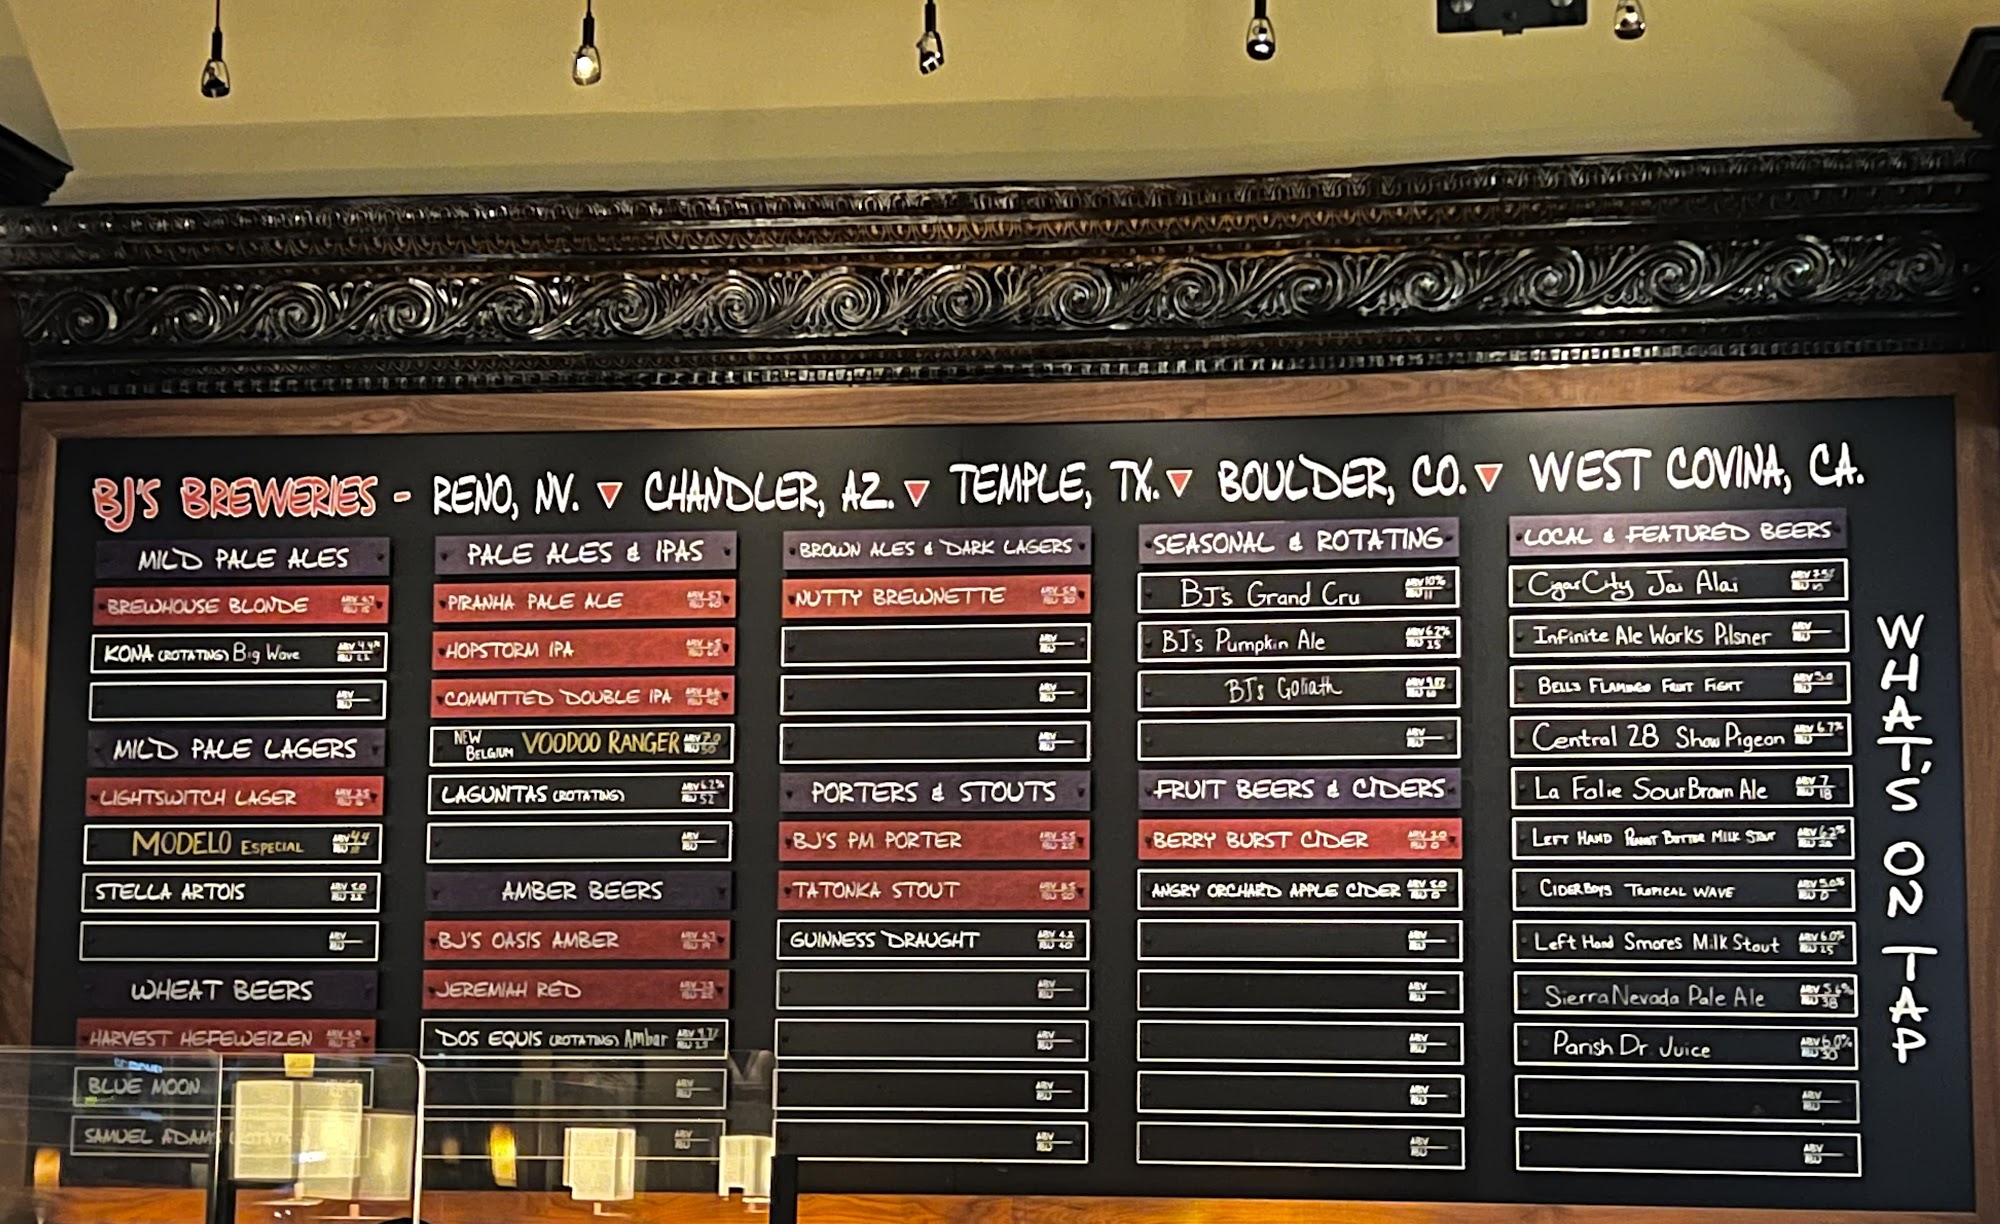 BJ'S BREWERIES - RENO, NV. CHANDLER, AZ. TEMPLE, TX. BOULDER, CO. WEST COVINA, CA.
MILD PALE ALES
BREWHOUSE BLONDE
KONA (ROTATING) Big Wave
ABV
IBU
MILD PALE LAGERS
LIGHTSWITCH LAGER
MODELO ESPECIAL
STELLA ARTOIS ABV 5.0
ABV
IBU
WHEAT BEERS
HARVEST HEFEWEIZEN
BLUE MOON
SAMUEL ADAMS
PALE ALES & IPAS
PIRANHA PALE ALE
HOPSTORM IPA
COMMITTED DOUBLE IPA
NEW BELGIUM VOODOO RANGER ABV 7.0
IBU 50
LAGUNITAS (ROTATING) ABV 6.2%
IBU 52
ABV
IBU
AMBER BEERS
BJ'S OASIS AMBER
JEREMIAH RED
DOS EQUIS (ROTATING) Ambar
ABV
IBU
ABV
IBU
BROWN ALES & DARK LAGERS
NUTTY BREWNETTE
ABV
IBU
ABV
IBU
ABV
IBU
PORTERS & STOUTS
BJ'S PM PORTER
TATONKA STOUT
GUINNESS DRAUGHT ABV 4.2
IBU 40
ABV
IBU
ABV
IBU
ABV
IBU
ABV
IBU
SEASONAL & ROTATING
BJ's Grand Cru ABV 10%
IBU 11
BJ's Pumpkin Ale ABV 6.2%
IBU 15
BJ's Goliath
ABV
IBU
FRUIT BEERS & CIDERS
BERRY BURST CIDER
ANGRY ORCHARD APPLE CIDER ABV 5.0
IBU 0
ABV
IBU
ABV
IBU
ABV
IBU
ABV
IBU
ABV
IBU
LOCAL & FEATURED BEERS
Cigar City Jai Alai
Infinite Ale Works Pilsner ABV
IBU
BELL'S FLAMINGO FRUIT FIGHT
Central 28 Show Pigeon ABV 6.7%
IBU
La Folie Sour Brown Ale ABV 7
IBU 18
LEFT HAND PEANUT BUTTER MILK STOUT ABV 6.2%
CIDERBOYS TROPICAL WAVE ABV 5.0%
IBU 0
Left Hand Smores Milk Stout ABV 6.0%
IBU 25
Sierra Nevada Pale Ale ABV 5.6%
IBU 38
Parish Dr. Juice ABV 6.0%
IBU 30
ABV
IBU
ABV
IBU
WHAT'S ON TAP